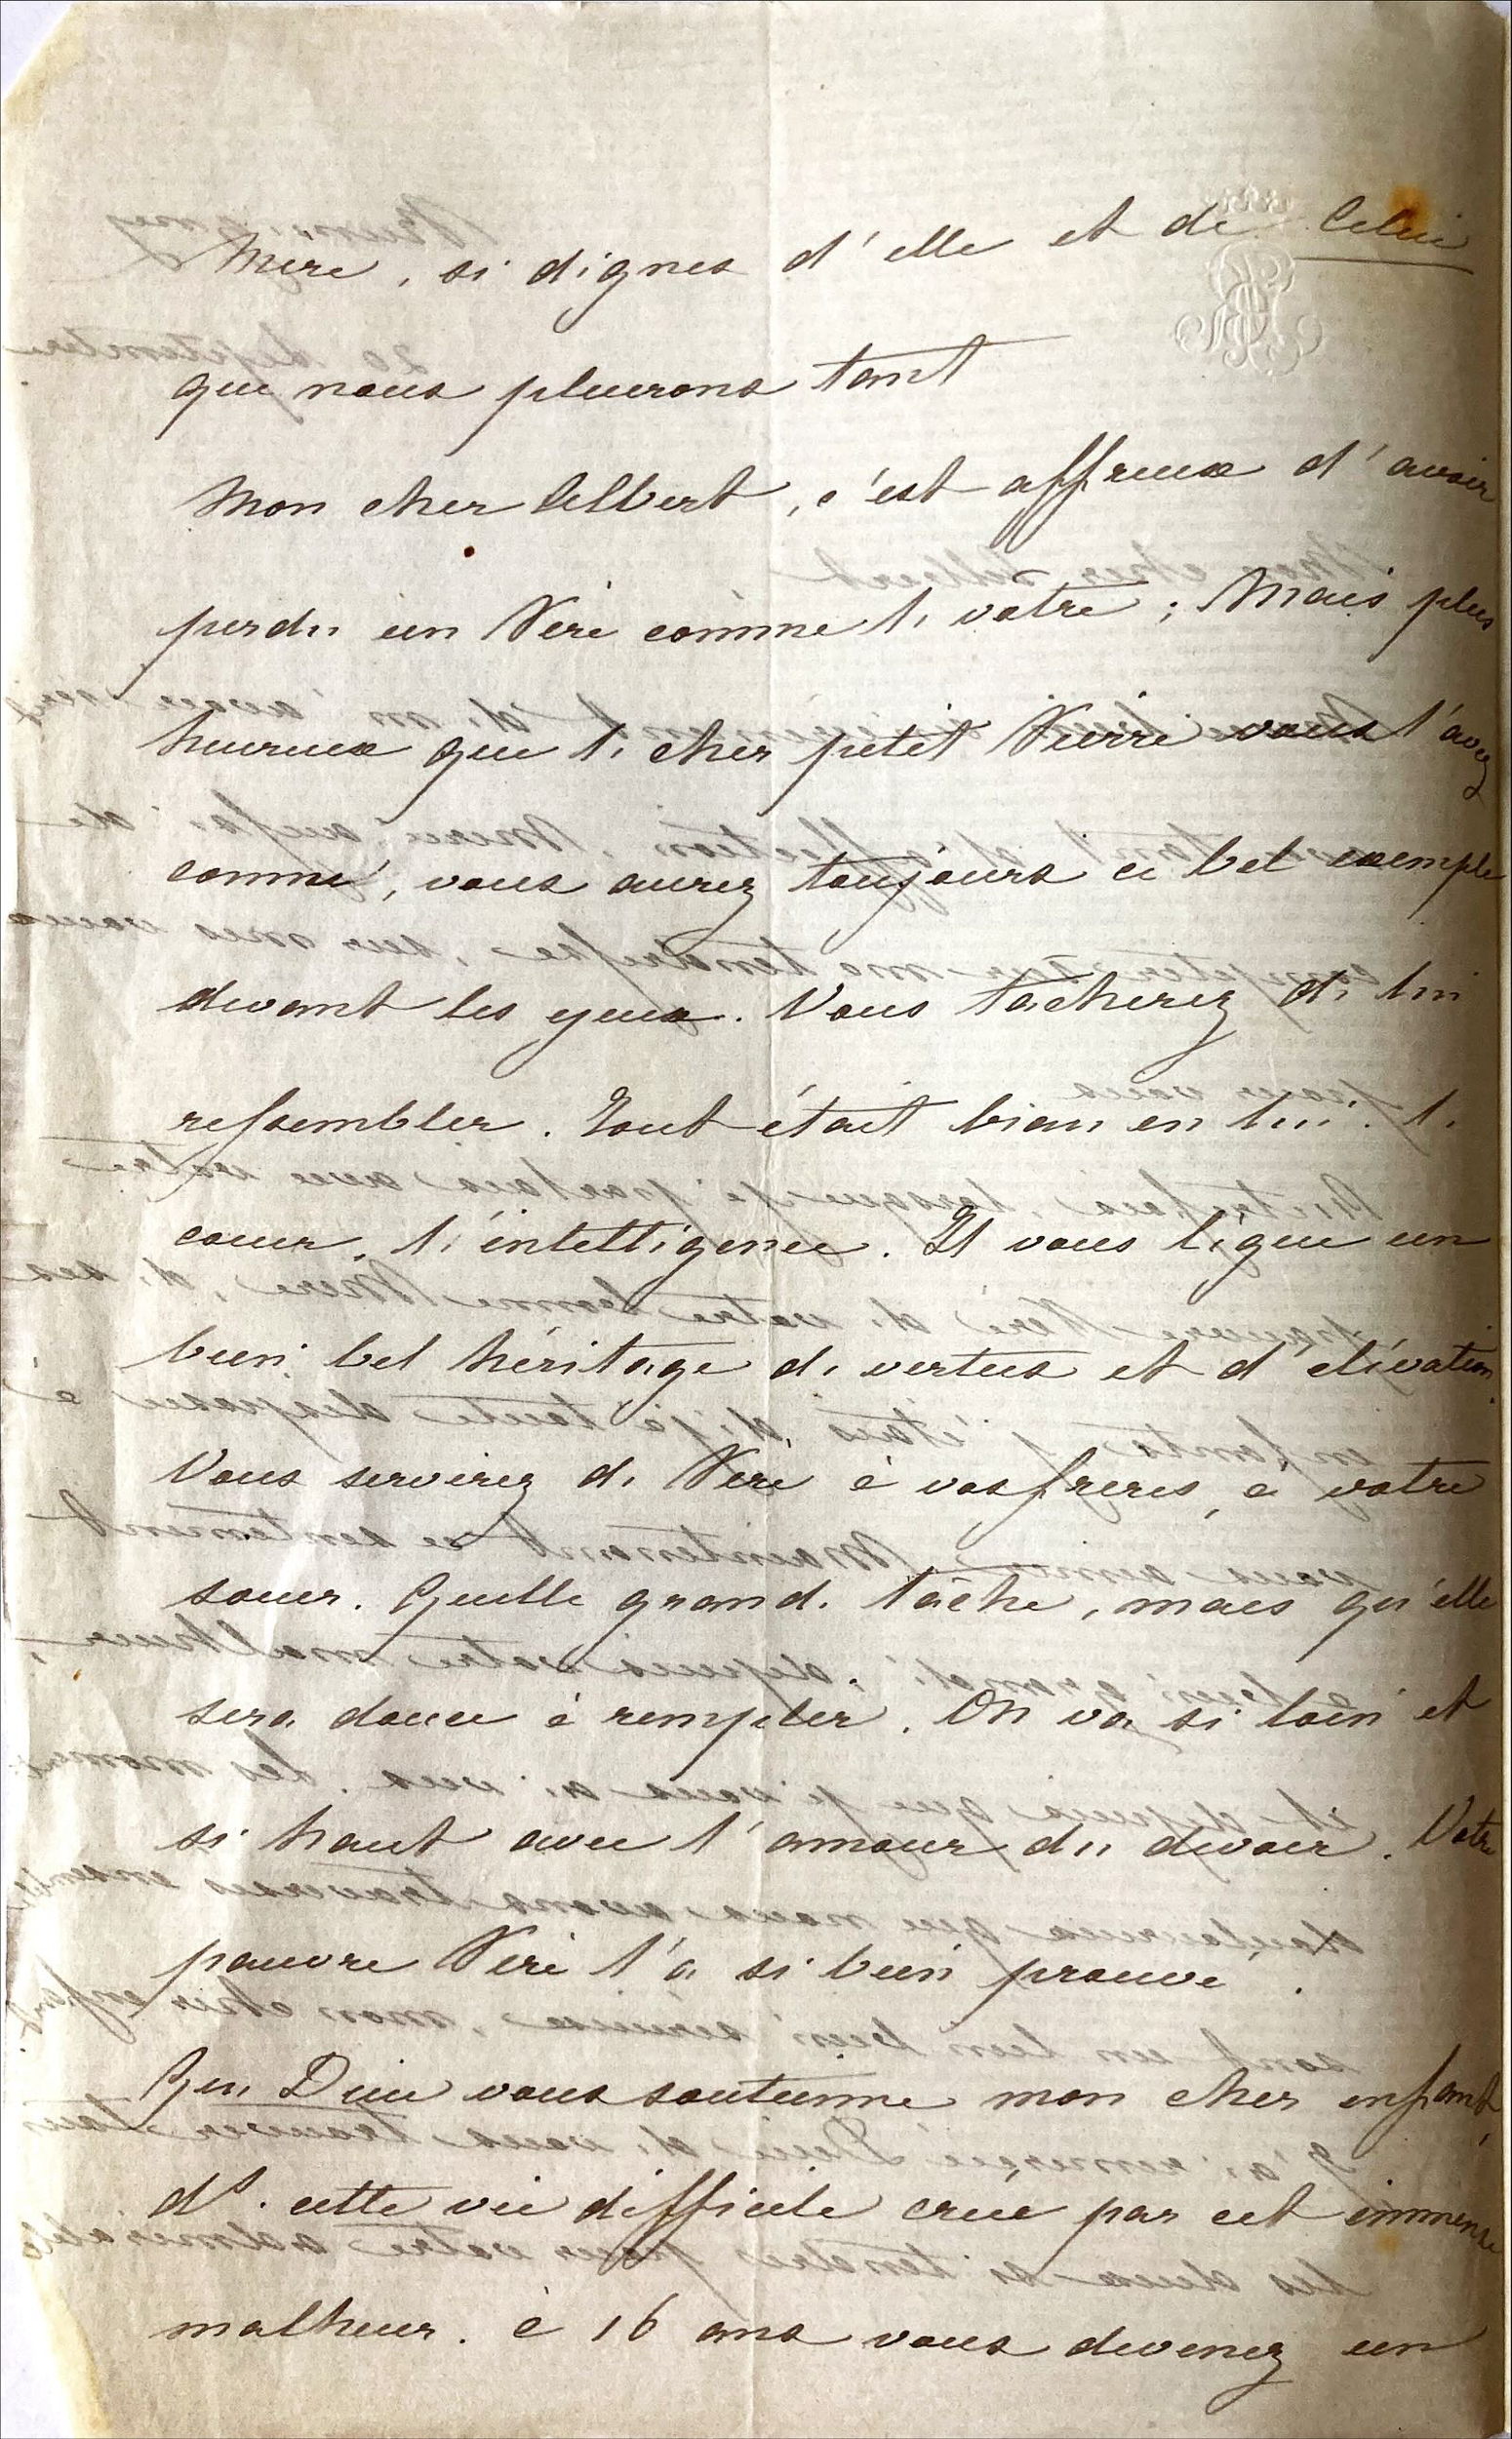 Mère, si dignes d'elle et de Celui
que nous pleurons tant
Mon cher Albert, c'est affreux d'avoir
perdu un Père comme le votre ; Mais plus
heureux que le cher petit Pierre vous l'avez
connu, vous aurez toujours ce bel exemple
devant les yeux. Vous tacherez de lui
ressembler. Tout était bien en lui. le
cœur, l'intelligence. Il vous lègue un
bien bel héritage de vertus et d'élévation.
Vous servirez de Père à vos freres, à votre
sœur. Quelle grande tâche, mais qu'elle
sera douce à remplir. On va si loin et
si haut avec l'amour du devoir. Votre
pauvre Père l'a si bien prouvé.
Que Dieu vous soutienne mon cher enfant,
ds. cette vie difficile créée par cet immense
malheur. à 16 ans vous devenez un